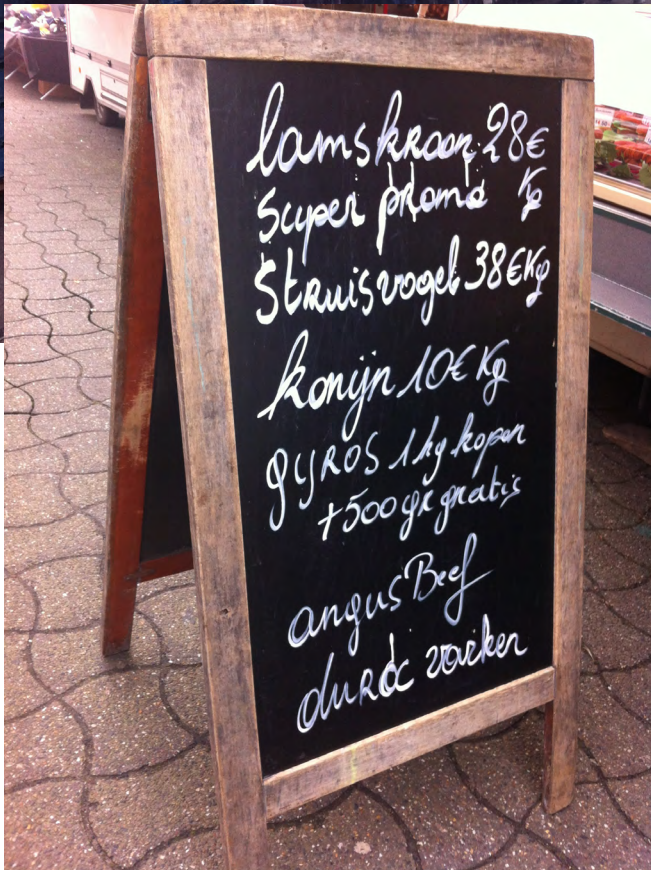 lamskroon 28€
super promo Kg
Struisvogel 38€Kg
konijn 10€ Kg
gyros 1 kg kopen
+500 gr gratis
angus Beef
duroc varken